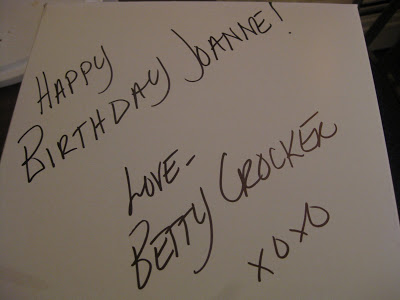 HAPPY
BIRTHDAY JOANNE!
LOVE-
BETTY CROCKER
XOXO